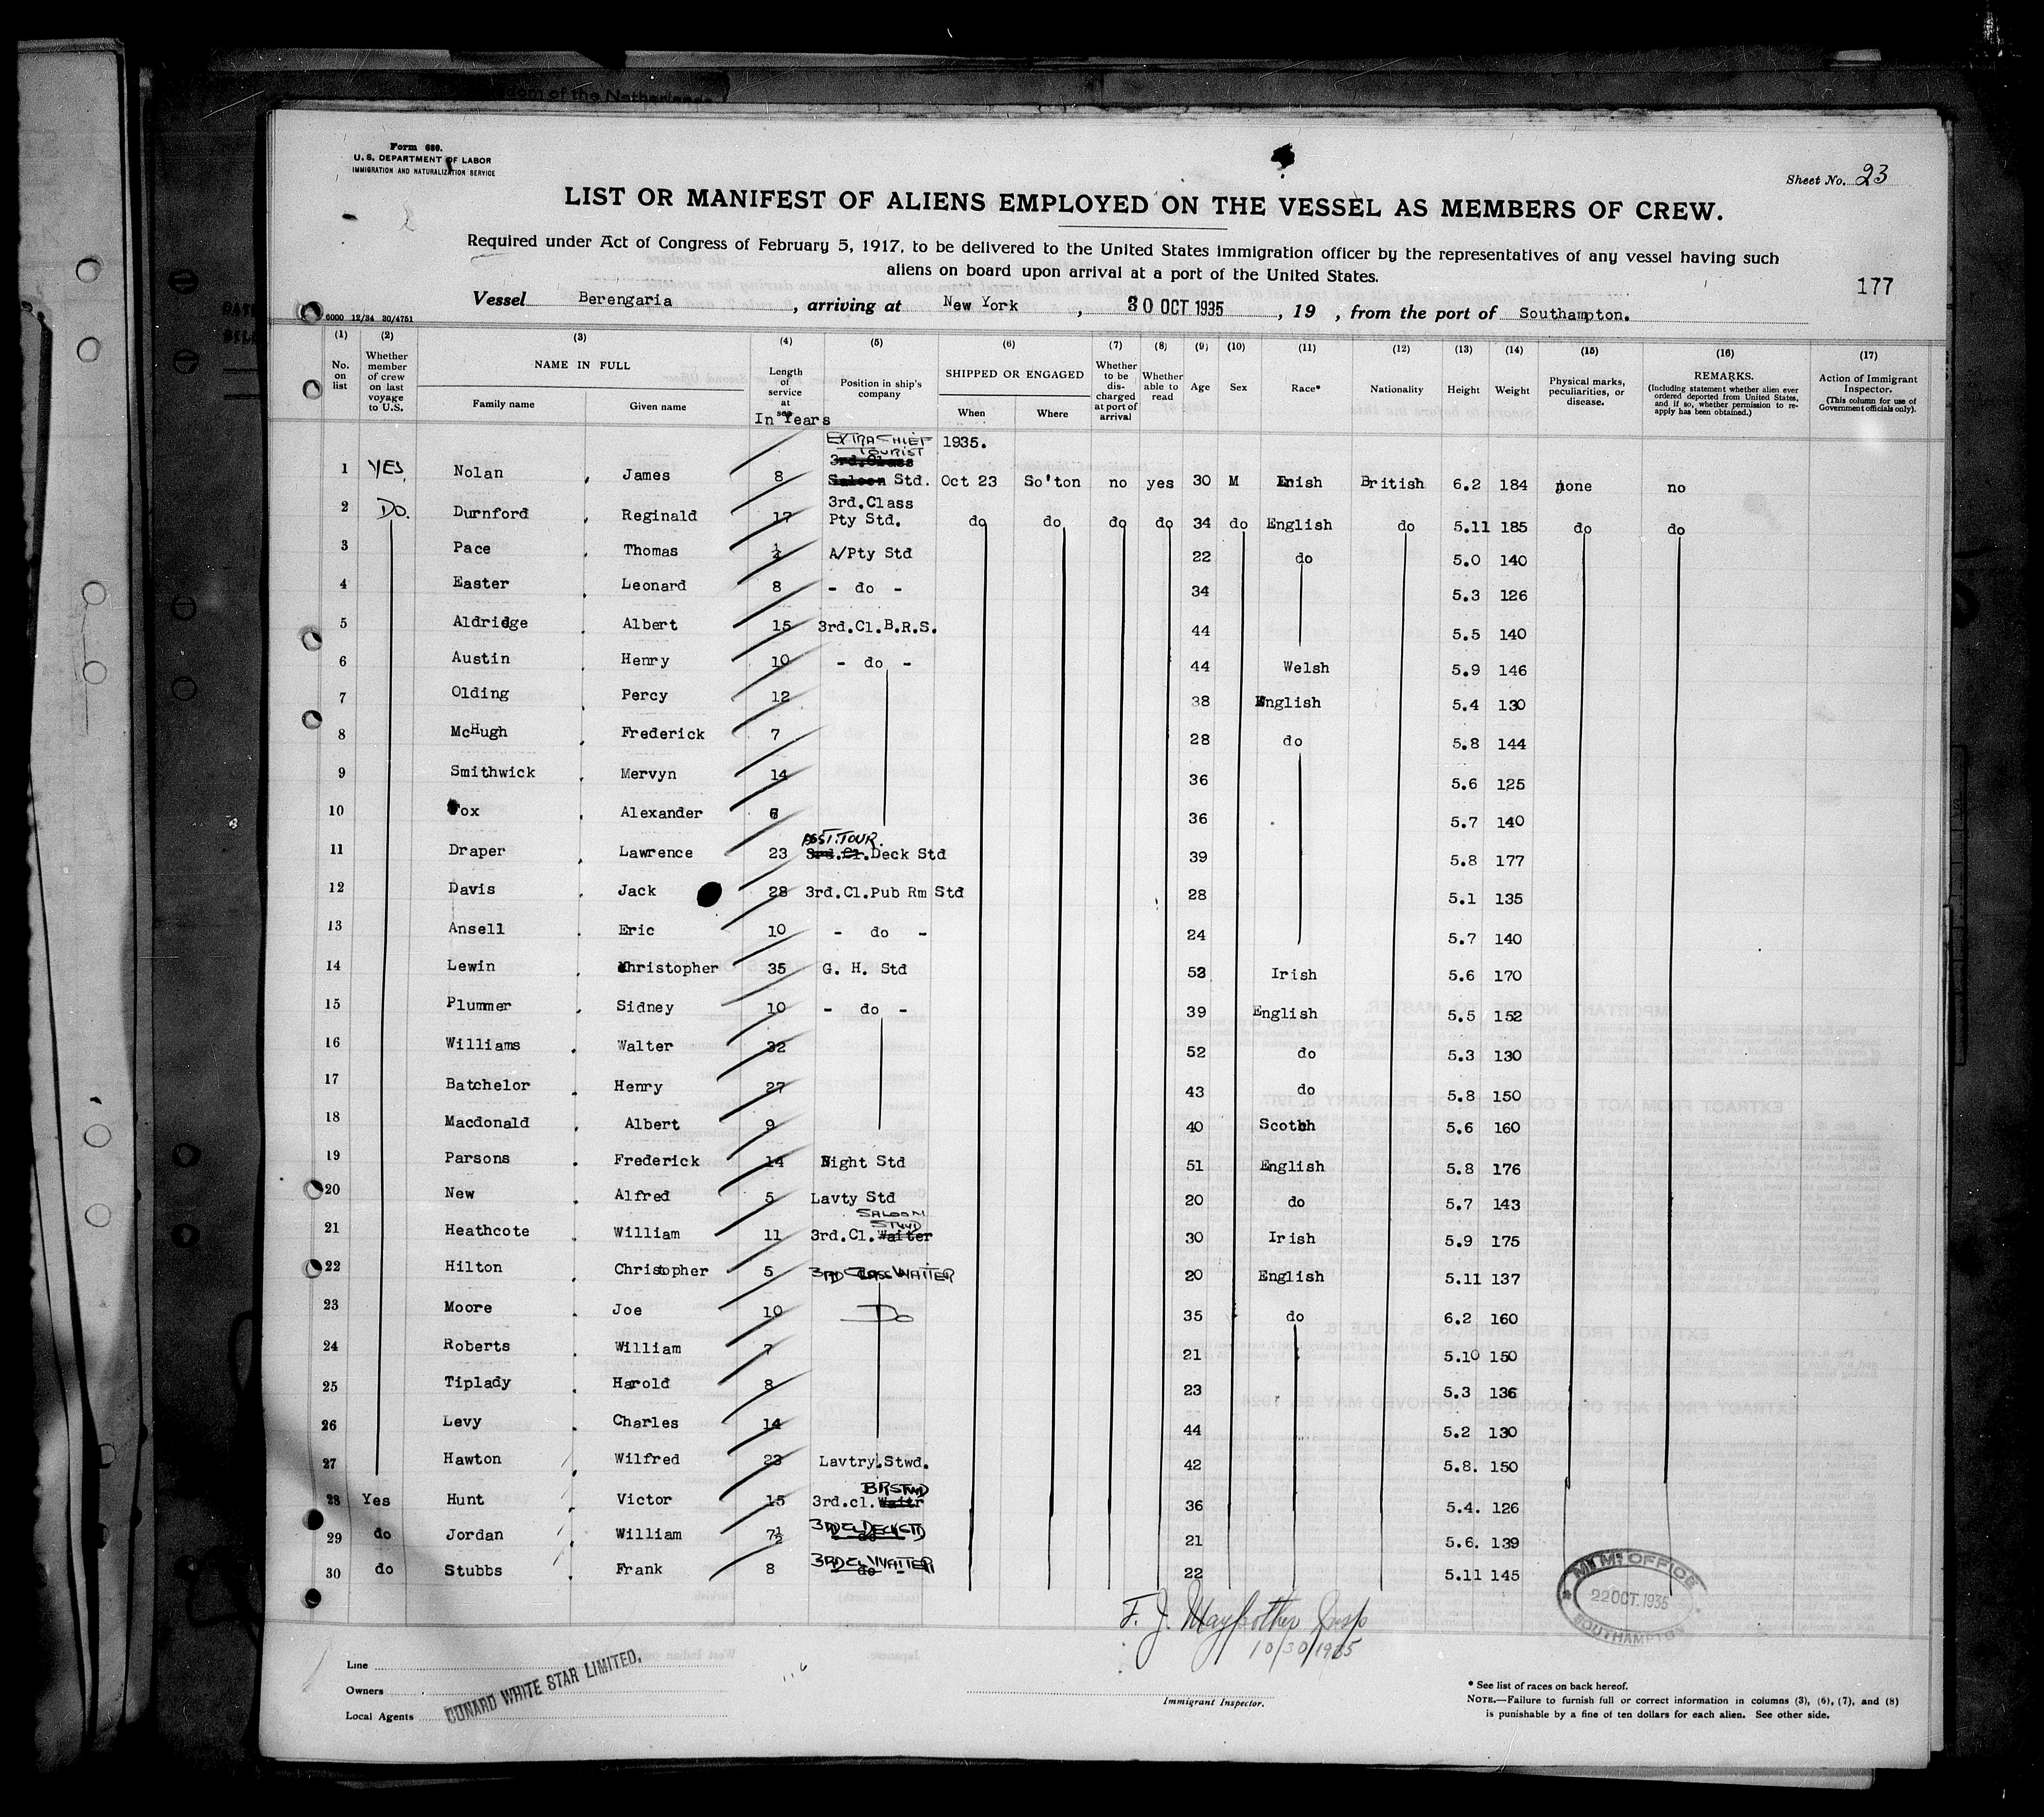 dom of the Netherlands
Form 689.
U. S. DEPARTMENT OF LABOR
IMMIGRATION AND NATURALIZATION SERVICE
Sheet No. 23
LIST OR MANIFEST OF ALIENS EMPLOYED ON THE VESSEL AS MEMBERS OF CREW.
Required under Act of Congress of February 5, 1917, to be delivered to the United States immigration officer by the representatives of any vessel having such
aliens on board upon arrival at a port of the United States.
177
Vessel Berengaria, arriving at New York, 30 OCT 1935, 19 , from the port of Southampton.
6000 12/34 30/4751
(1) (2) (3) (4) (5) (6) (7) (8) (9) (10) (11) (12) (13) (14) (15) (16) (17)
No. on list
Whether member of crew on last voyage to U.S.
NAME IN FULL
Family name
Given name
Length of service at sea
In Years
Position in ship's company
SHIPPED OR ENGAGED
When
Where
Whether to be discharged at port of arrival
Whether able to read
Age
Sex
Race*
Nationality
Height
Weight
Physical marks, peculiarities, or disease.
REMARKS.
(Including statement whether alien ever ordered deported from United States, and if so, whether permission to reapply has been obtained.)
Action of Immigrant Inspector.
(This column for use of Government officials only).
EXTRA CHIEF 1935.
TOURIST
3rd.Class
1 YES, Nolan, James 8 Saloon Std. Oct 23 So'ton no yes 30 M Irish British 6.2 184 none no
3rd.Class
2 Do. Durnford, Reginald 17 Pty Std. do do do do 34 do English do 5.11 185 do do
3 Pace, Thomas ¼ A/Pty Std 22 do 5.0 140
4 Easter, Leonard 8 - do - 34 5.3 126
5 Aldridge, Albert 15 3rd.Cl.B.R.S. 44 5.5 140
6 Austin, Henry 10 - do - 44 Welsh 5.9 146
7 Olding, Percy 12 38 English 5.4 130
8 McHugh, Frederick 7 28 do 5.8 144
9 Smithwick, Mervyn 14 36 5.6 125
10 Fox, Alexander 6 36 5.7 140
ASST. TOUR.
11 Draper, Lawrence 23 3rd.Cl.Deck Std 39 5.8 177
12 Davis, Jack 28 3rd.Cl.Pub Rm Std 28 5.1 135
13 Ansell, Eric 10 - do - 24 5.7 140
14 Lewin, Christopher 35 G. H. Std 52 Irish 5.6 170
15 Plummer, Sidney 10 - do - 39 English 5.5 152
16 Williams, Walter 32 52 do 5.3 130
17 Batchelor, Henry 27 43 do 5.8 150
18 Macdonald, Albert 9 40 Scotch 5.6 160
19 Parsons, Frederick 14 Night Std 51 English 5.8 176
20 New, Alfred 5 Lavty Std 20 do 5.7 143
SALOON
STWD
21 Heathcote, William 11 3rd.Cl.Waiter 30 Irish 5.9 175
22 Hilton, Christopher 5 3RD CLASS WAITER 20 English 5.11 137
23 Moore, Joe 10 Do 35 do 6.2 160
24 Roberts, William 7 21 5.10 150
25 Tiplady, Harold 8 23 5.3 136
26 Levy, Charles 14 44 5.2 130
27 Hawton, Wilfred 23 Lavtry.Stwd. 42 5.8. 150
BR STWD
28 Yes Hunt, Victor 15 3rd.cl. Waitr 36 5.4. 126
29 do Jordan, William 7½ 3RD CL DECK STD do 21 5.6. 139
30 do Stubbs, Frank 8 3RD CL WAITER do 22 5.11 145
OFFICE
22 OCT. 1935
SOUTHAMPTON
10/30/1935
Line
Owners
Local Agents
CUNARD WHITE STAR LIMITED.
Immigrant Inspector.
* See list of races on back hereof.
NOTE.—Failure to furnish full or correct information in columns (3), (6), (7), and (8)
is punishable by a fine of ten dollars for each alien. See other side.